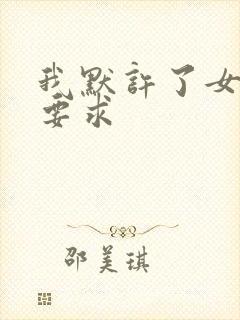 我默許了女
要求
邵美琪